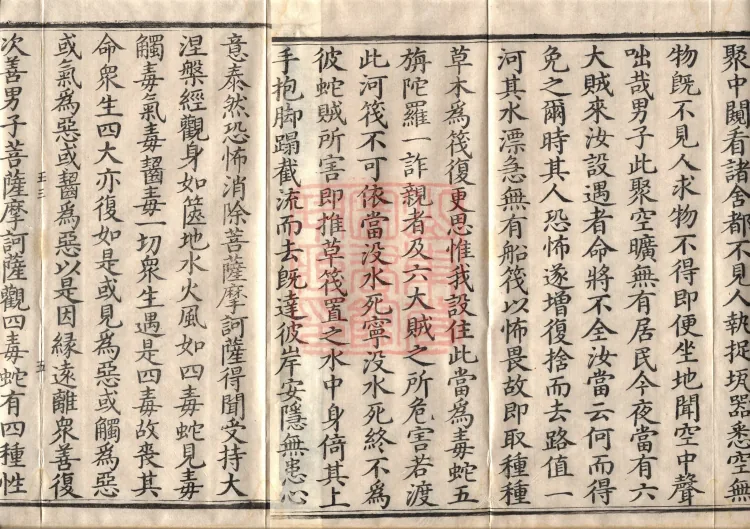 聚中闚看諸舍都不見人執捉坏器悉空無
物既不見人求物不得即便坐地聞空中聲
咄哉男子此聚空曠無有居民今夜當有六
大賊來汝設遇者命將不全汝當云何而得
免之爾時其人恐怖遂增復捨而去路值一
河其水漂急無有船筏以怖畏故即取種種
草木為筏復更思惟我設住此當為毒蛇五
旃陀羅一詐親者及六大賊之所危害若渡
此河筏不可依當没水死寧没水死終不為
彼蛇賊所害即推草筏置之水中身倚其上
手抱脚蹋截流而去既達彼岸安隱無患心
意泰然恐怖消除菩薩摩訶薩得聞受持大
涅槃經觀身如篋地水火風如四毒蛇見毒
觸毒氣毒齧毒一切眾生遇是四毒故喪其
命眾生四大亦復如是或見為惡或觸為惡
或氣為惡或齧為惡以是因緣遠離眾善復
次善男子菩薩摩訶薩觀四毒蛇有四種性